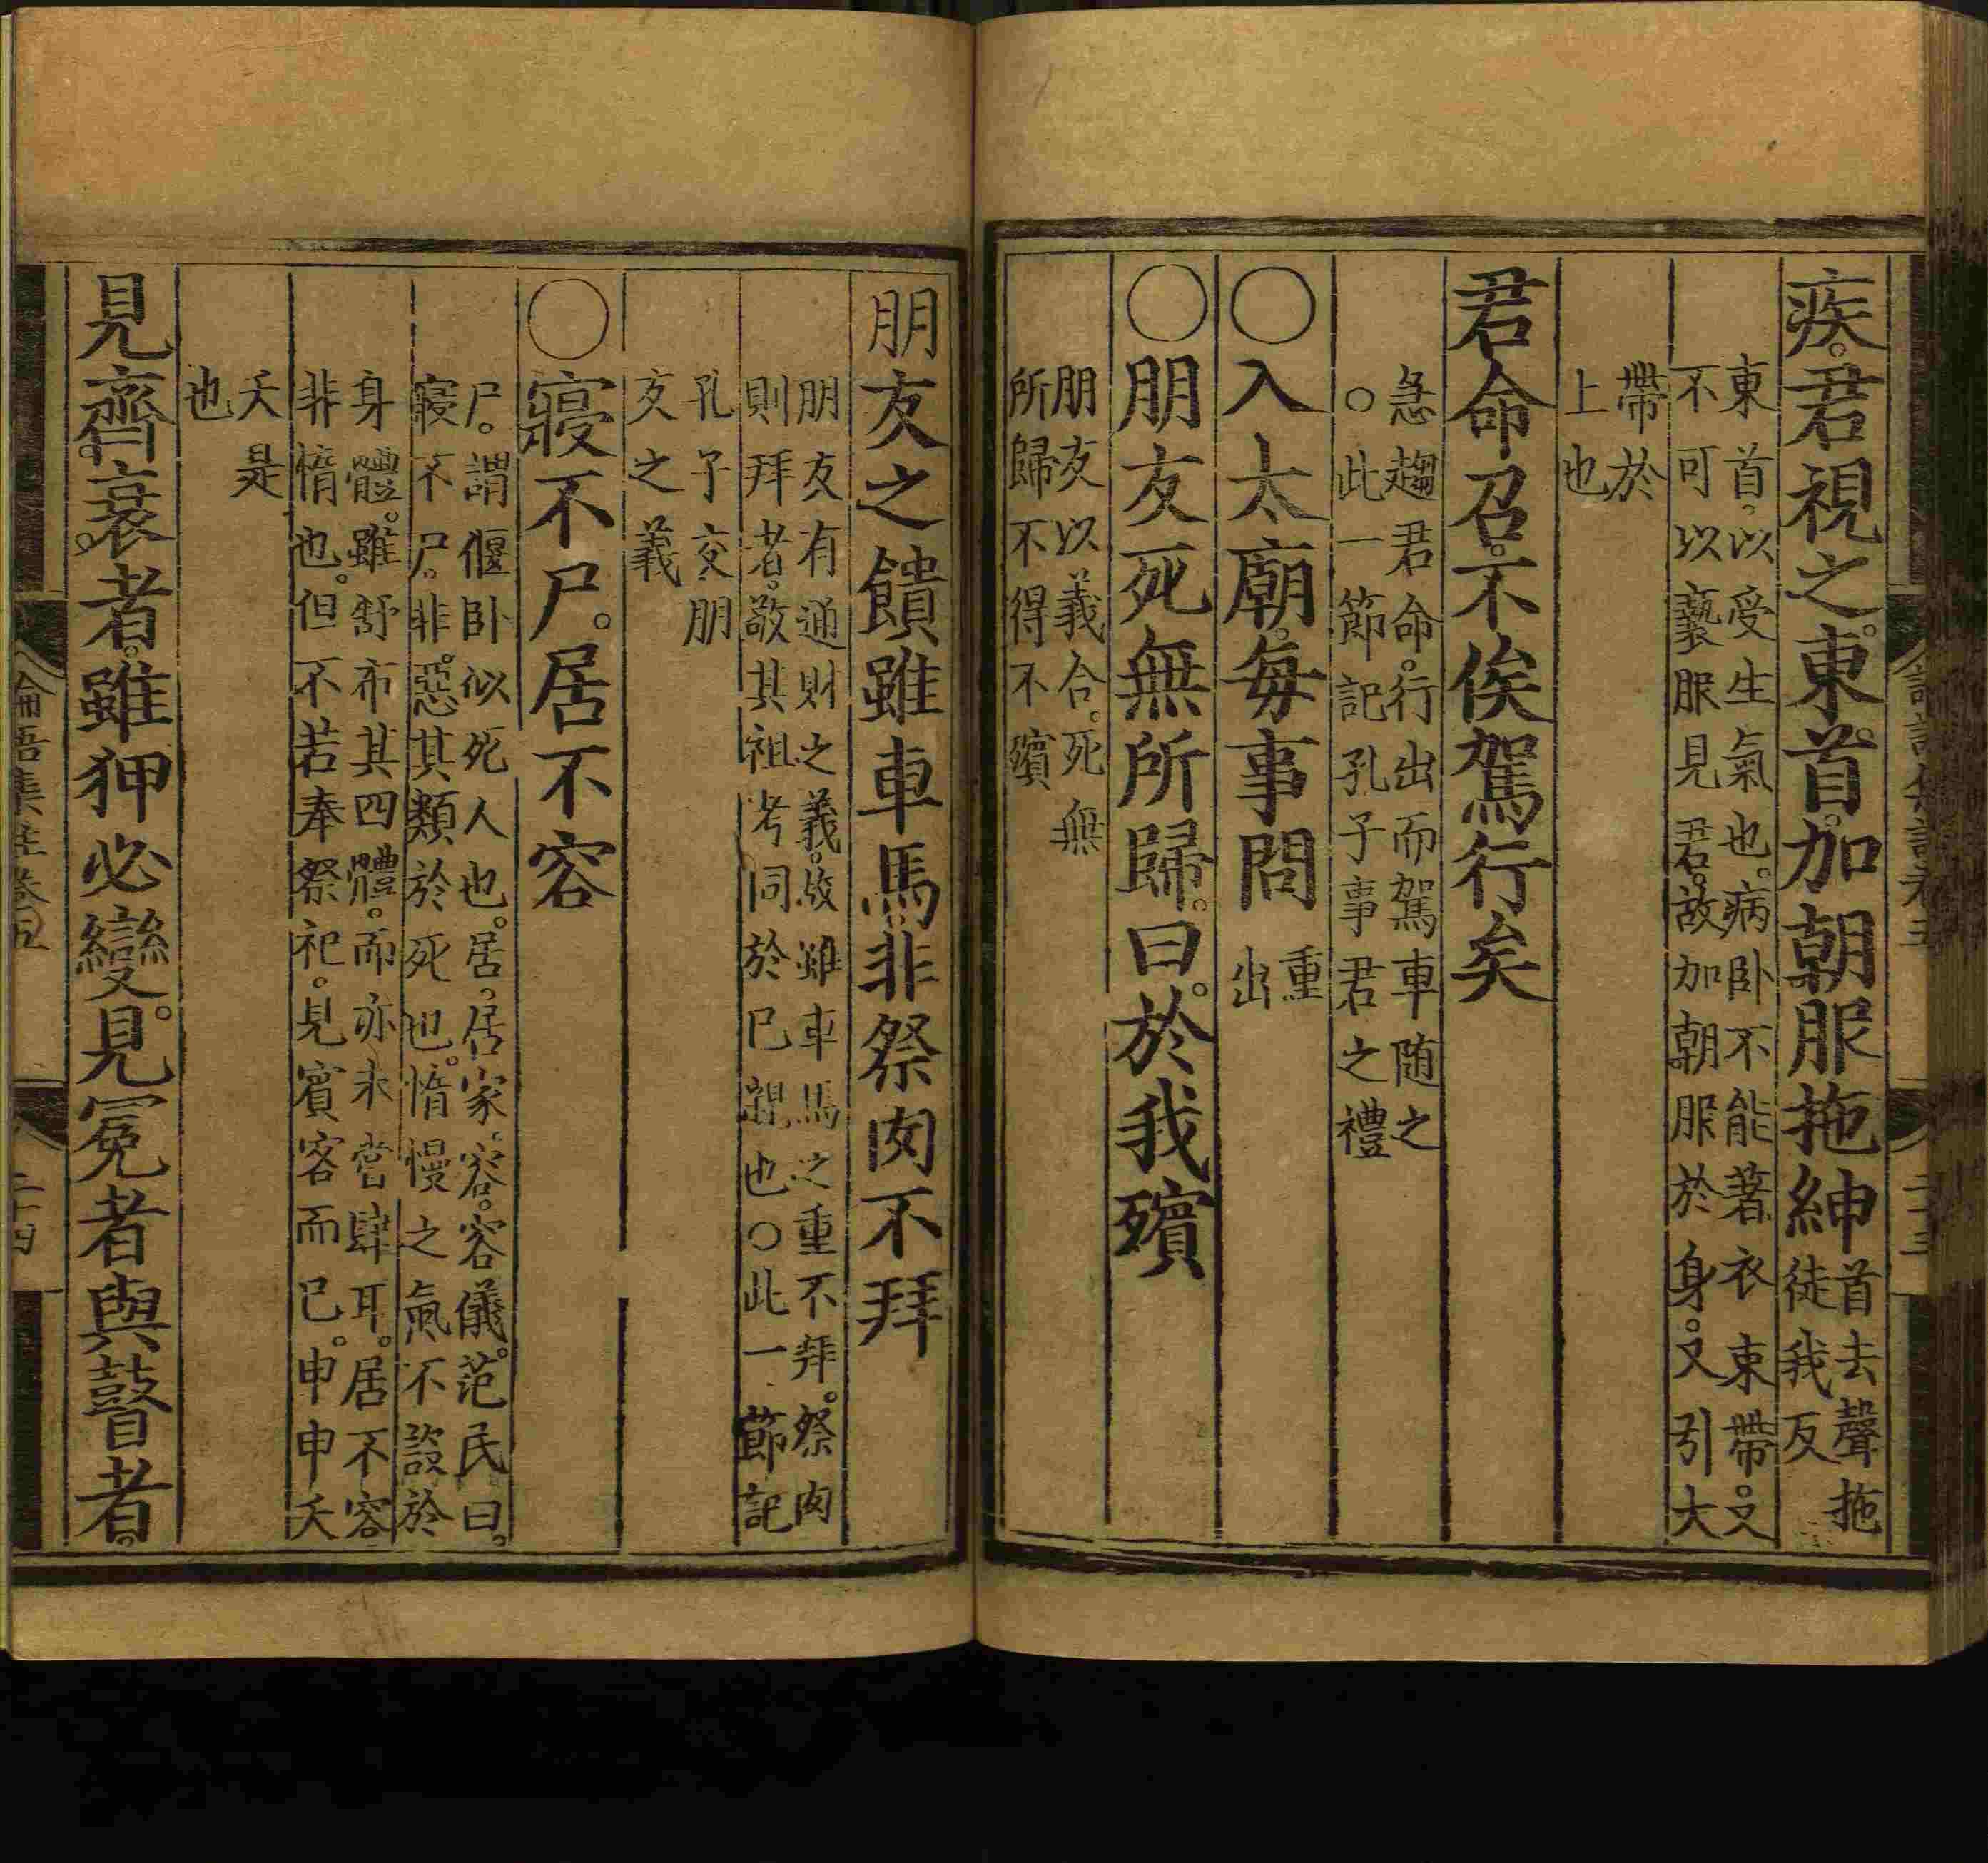 疾。君視之。東首。加朝服拖紳
首去聲拖
徒我反
東首。以受生氣也。病臥不能著衣束帶。又
不可以褻服見君。故加朝服於身。又引大
帶於
上也
君命召。不俟駕行矣
急趨君命。行出而駕車随之
○此一節記孔子事君之禮
○入太廟。每事問
重
出
○朋友死無所歸。曰。於我殯
朋友以義合。死無
所歸不得不殯
朋友之饋雖車馬非祭肉不拜
朋友有通財之義。故雖車馬之重不拜。祭肉
則拜者。敬其祖考同於己親也○此一節記
孔子交朋
友之義
○寢不尸。居不容
尸。謂偃臥似死人也。居。居家。容。容儀。范氏曰。
寢不尸。非惡其類於死也。惰慢之氣不設於
身體。雖舒布其四體。而亦未嘗肆耳。居不容
非惰也。但不若奉祭祀。見賓客而已。申申夭
夭是
也
見齊衰者。雖狎必變。見冕者與瞽者。
論語集註卷五
二十四